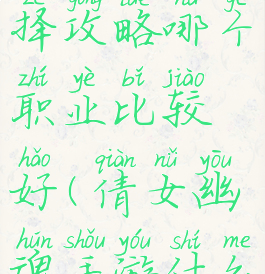 zé gōng lüè nǎ gè
择攻略哪个
zhí yè bǐ jiào
职业比较
hǎo qiàn nǚ yōu
好(倩女幽
hún shǒu yóu shí me
魂手游什么